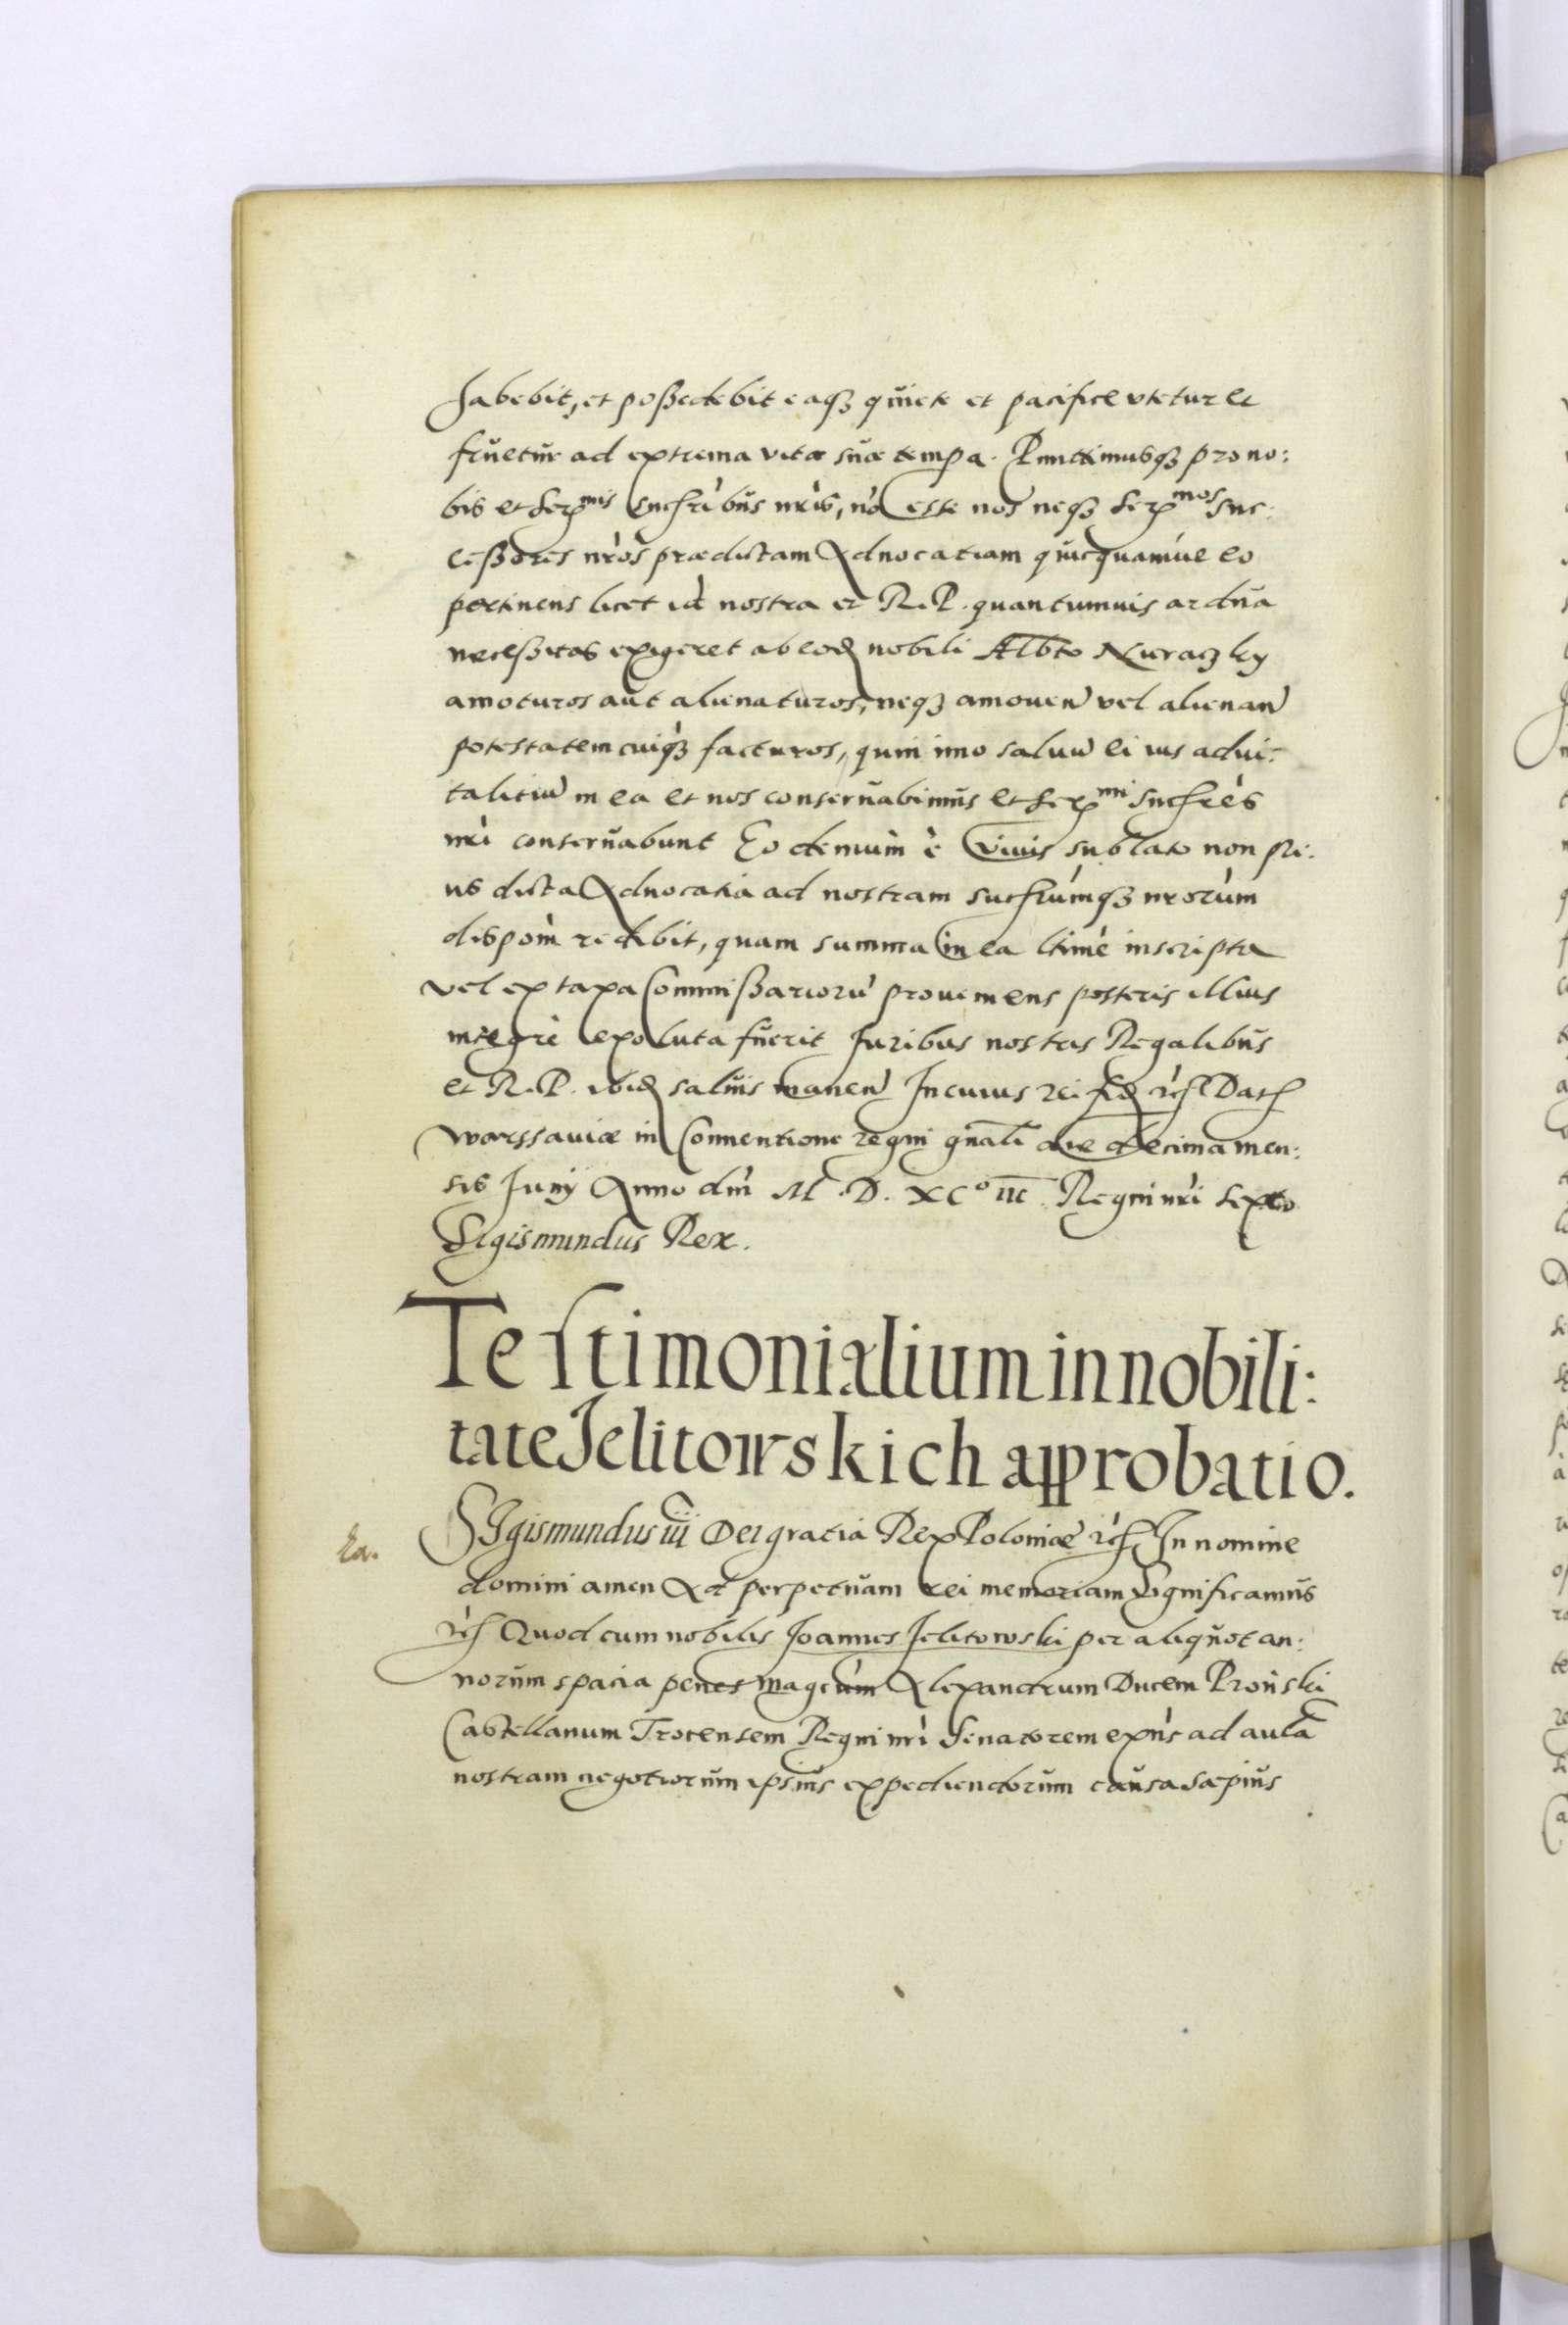 habebit, et possedebit eaqȝ quiete et pacifice vtetur et
fruetur ad extrema vitæ suæ tempa. Pmittimusqȝ pro no:
bis et Ser^mis Succrìbus nr̃is, nõ esse nos neqȝ Ser^mos Suc
cessores nr̃os prædictam Aduocatiam quicquamúe eo
pertinens licet id nostra et R.P. quantumuis ardua
necessitas exigeret ab eod nobili Alb̃to
amoturos aut alienaturos, neqȝ amouen vel alienan
potestatem cuiqȝ facturos, quin imo saluũ ei ius adui:
talitiũ in ea et nos conseruabimus et Ser^mi Succrẽs
nr̃i conseruabunt Eo demum è viuis sublato non pri:
us dicta Aduocatia ad nostram succrúmqȝ nrorúm
dispom̃ redibit, quam summa in ea ltimè inscripta
vel ex taxa Commissariorũ proueniens posteris illius
integrè exoluta fuerit Juribus nostris Regalibus
et R.P. ibid saluis manen In cuius rei fid ꝛc Dat
Warssauiæ in Conuentione regni gnãli die decima men:
sis Junij Anno dni M.D.XC° iii. Regni nr̃i sexto
Sigismundus Rex.
Testimonialium in nobili:
tate Jelitowskich approbatio.
Ra.
SIgismundus iii Dei gratia Rex Poloniæ ꝛc In nomine
domini amen Ad perpetuam rei memoriam Significamus
ꝛc Quod cum nobilis Joannes Jelitowski per aliquot an:
norum spacia penes magcum Alexandrum Ducem Pronski
Castellanum Trocensem Regni nr̃i Senatorem exñs ad aulã
nostram negotiorum ipsius expediendorum causa sæpius